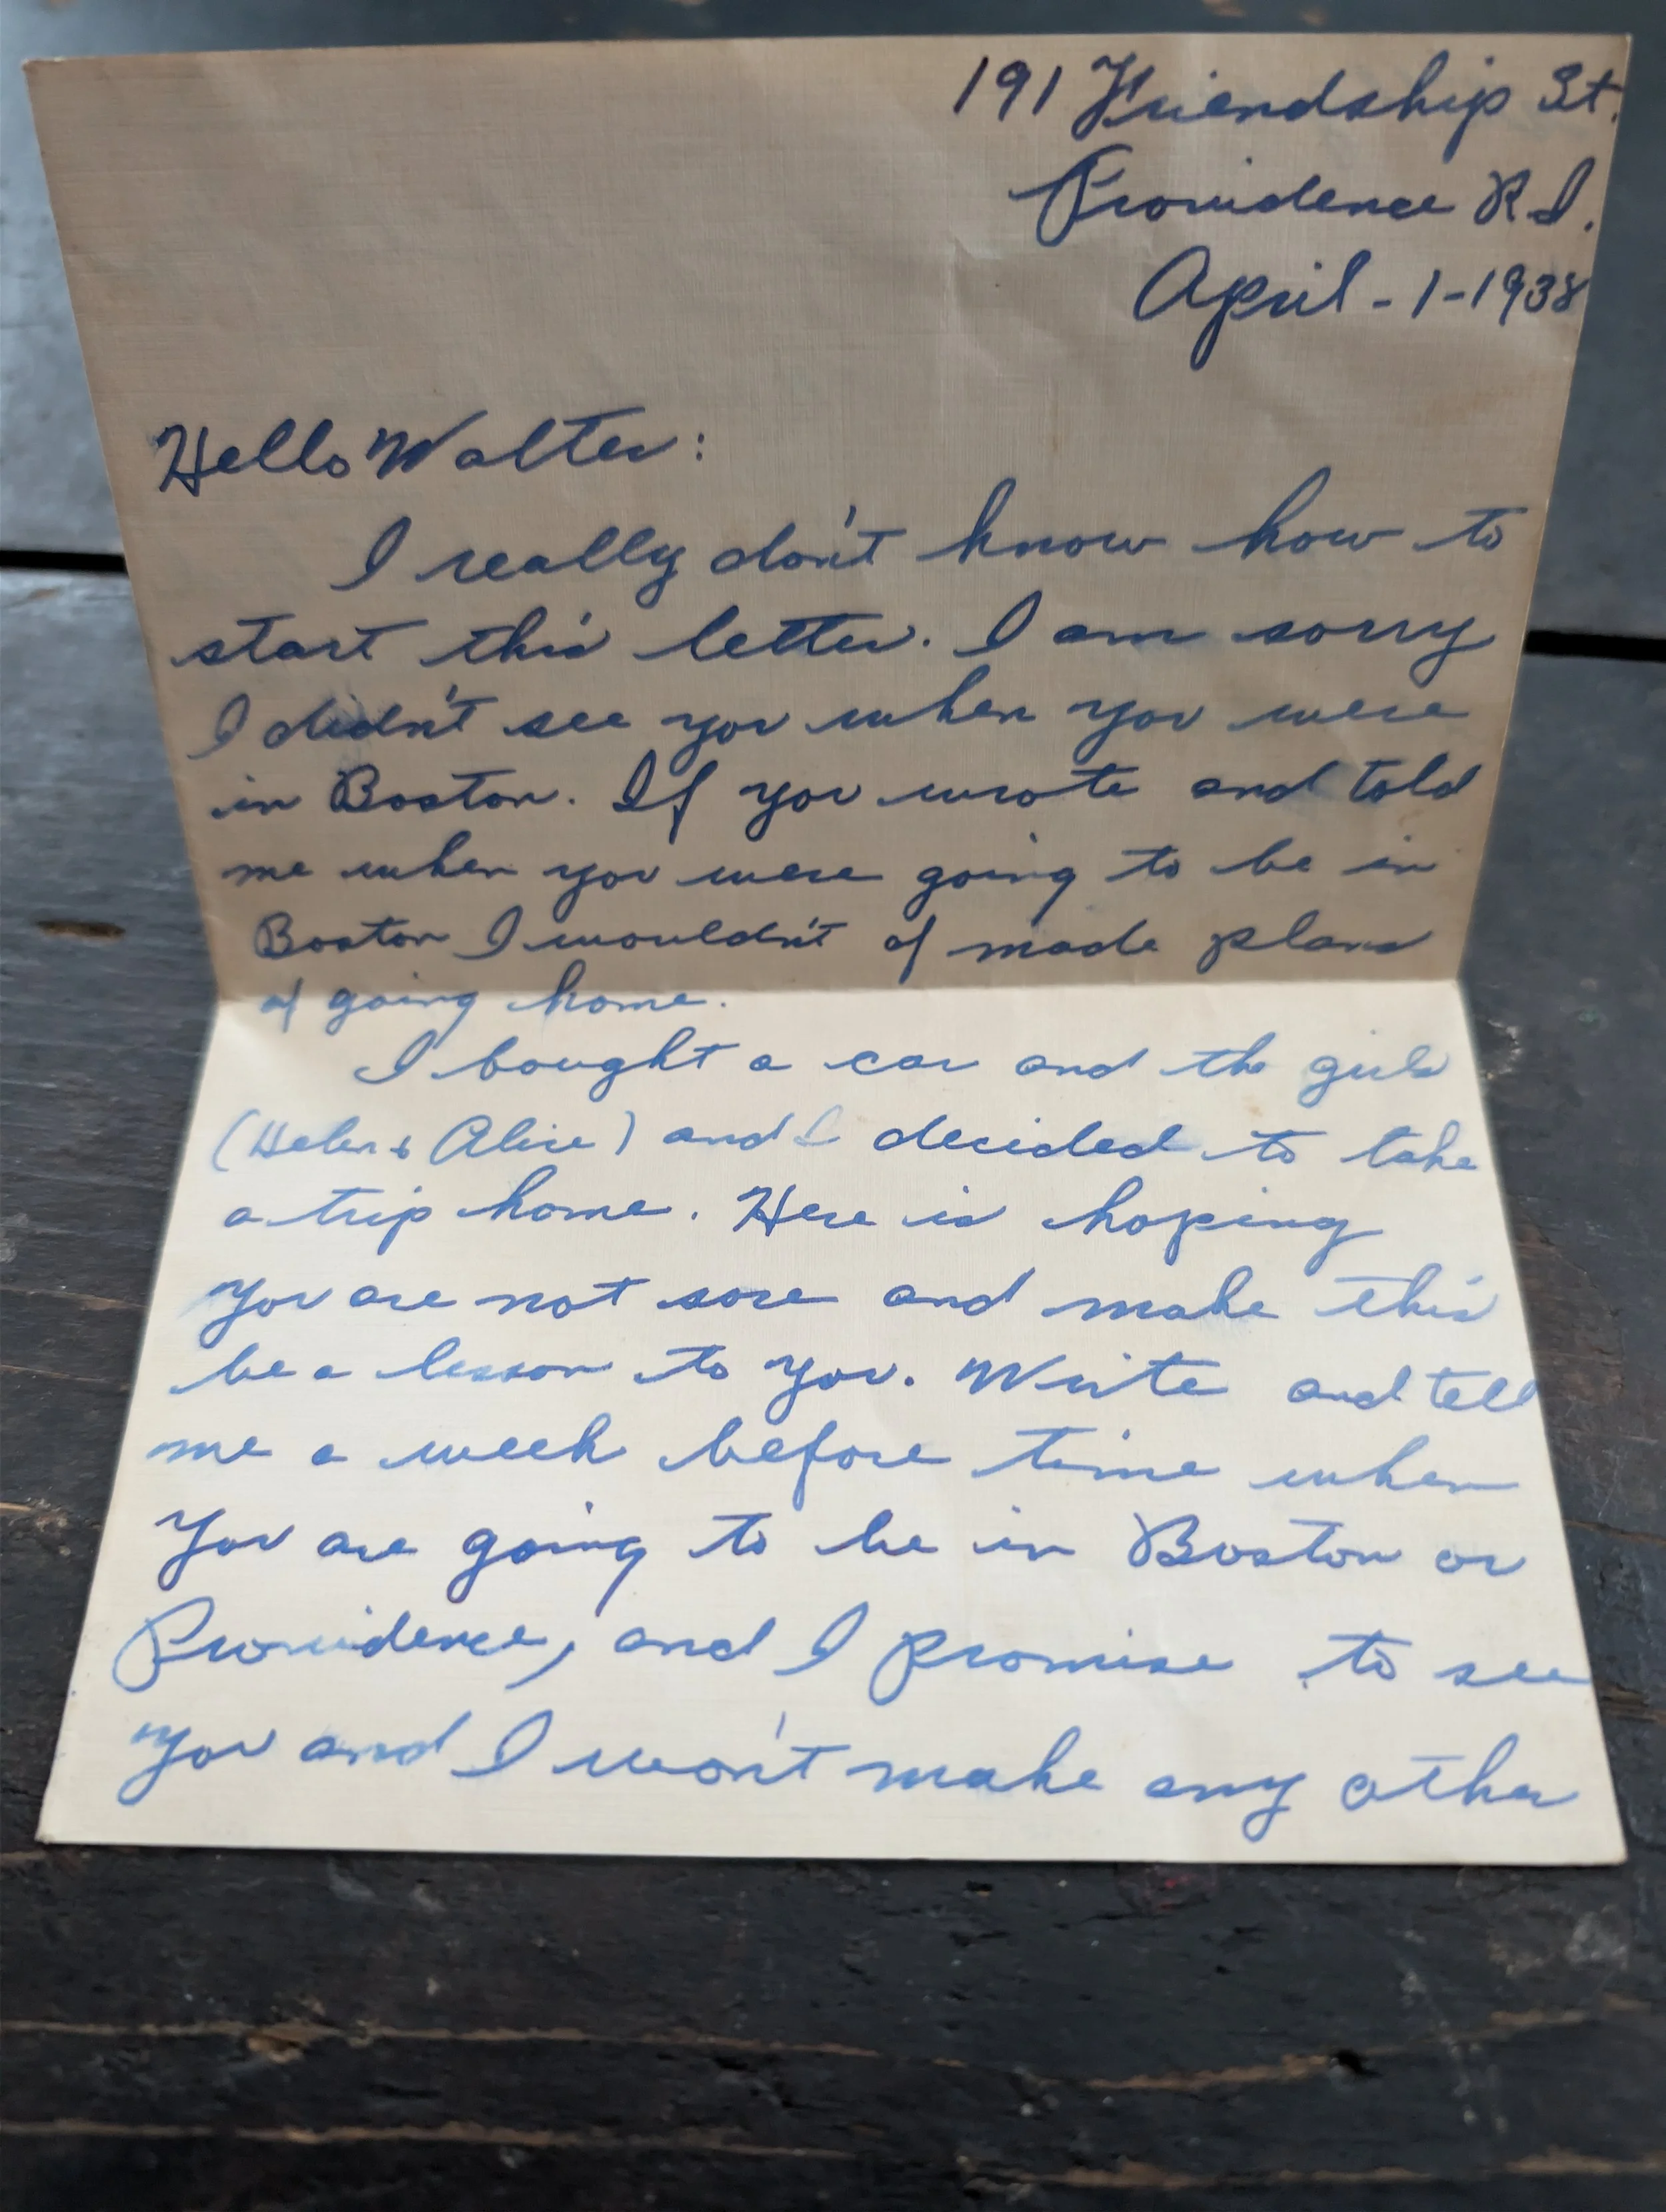 191 Friendship St.
Providence R.I.
April-1-1938
Hello Walter:
I really don't know how to
start this letter. I am sorry
I didn't see you when you were
in Boston. If you wrote and told
me when you were going to be in
Boston I wouldn't of made plans
of going home.
I bought a car and the girls
(Helen & Alice) and I decided to take
a trip home. Here is hoping
you are not sore and make this
be a lesson to you. Write and tell
me a week before time when
you are going to be in Boston or
Providence, and I promise to see
you and I won't make any other